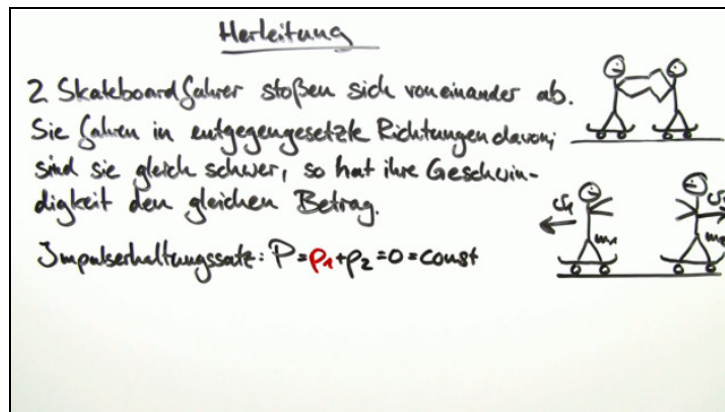 Herleitung
2 Skateboardfahrer stoßen sich voneinander ab.
Sie fahren in entgegengesetzte Richtungen davon;
sind sie gleich schwer, so hat ihre Geschwin-
digkeit den gleichen Betrag.
v₁
m₁
Impulserhaltungssatz: P=p₁+p₂=0=const